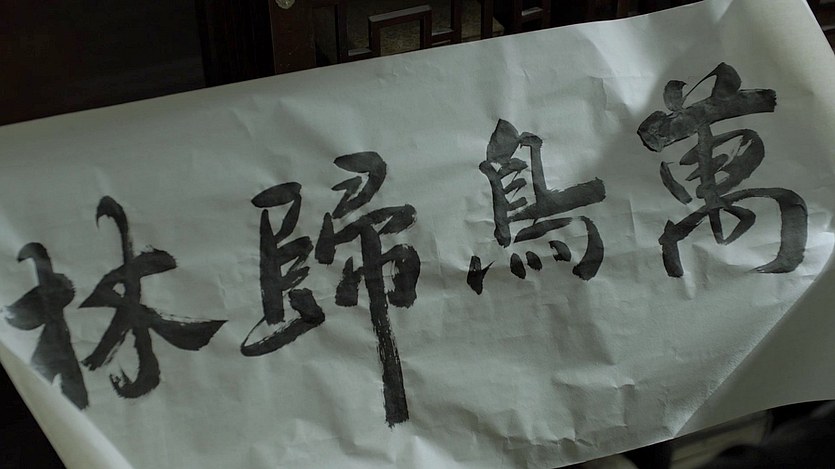 萬鳥歸林